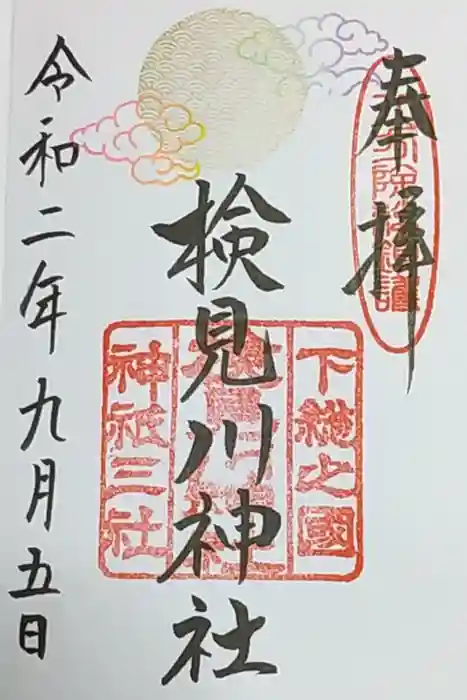 奉拝
検見川神社
下総之國
神祇三社
令和二年九月五日